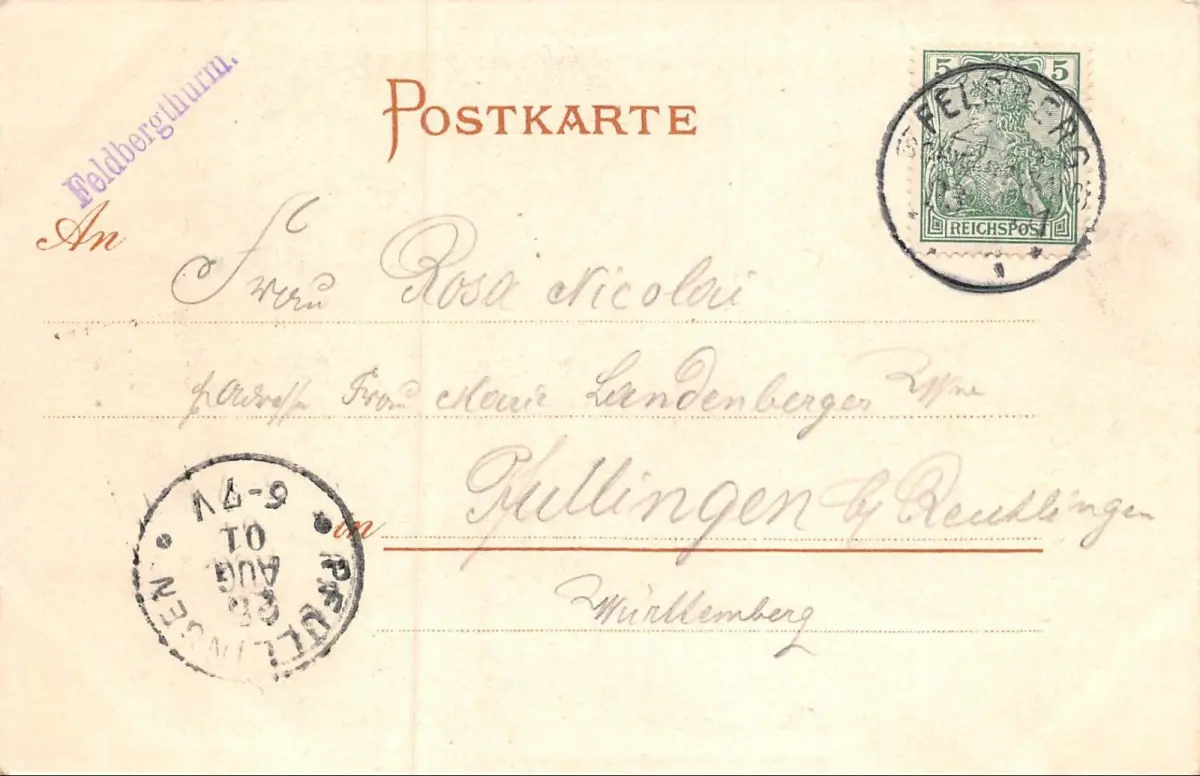 Feldbergthurm.
POSTKARTE
5 5
FELDBERG
REICHSPOST
An
Frau Rosa Nicolai
p Adresse Frau Marie Landenberger Wwe
in Pfullingen b/ Reutlingen
Württemberg
PFULLINGEN
AUG
01
6-7V